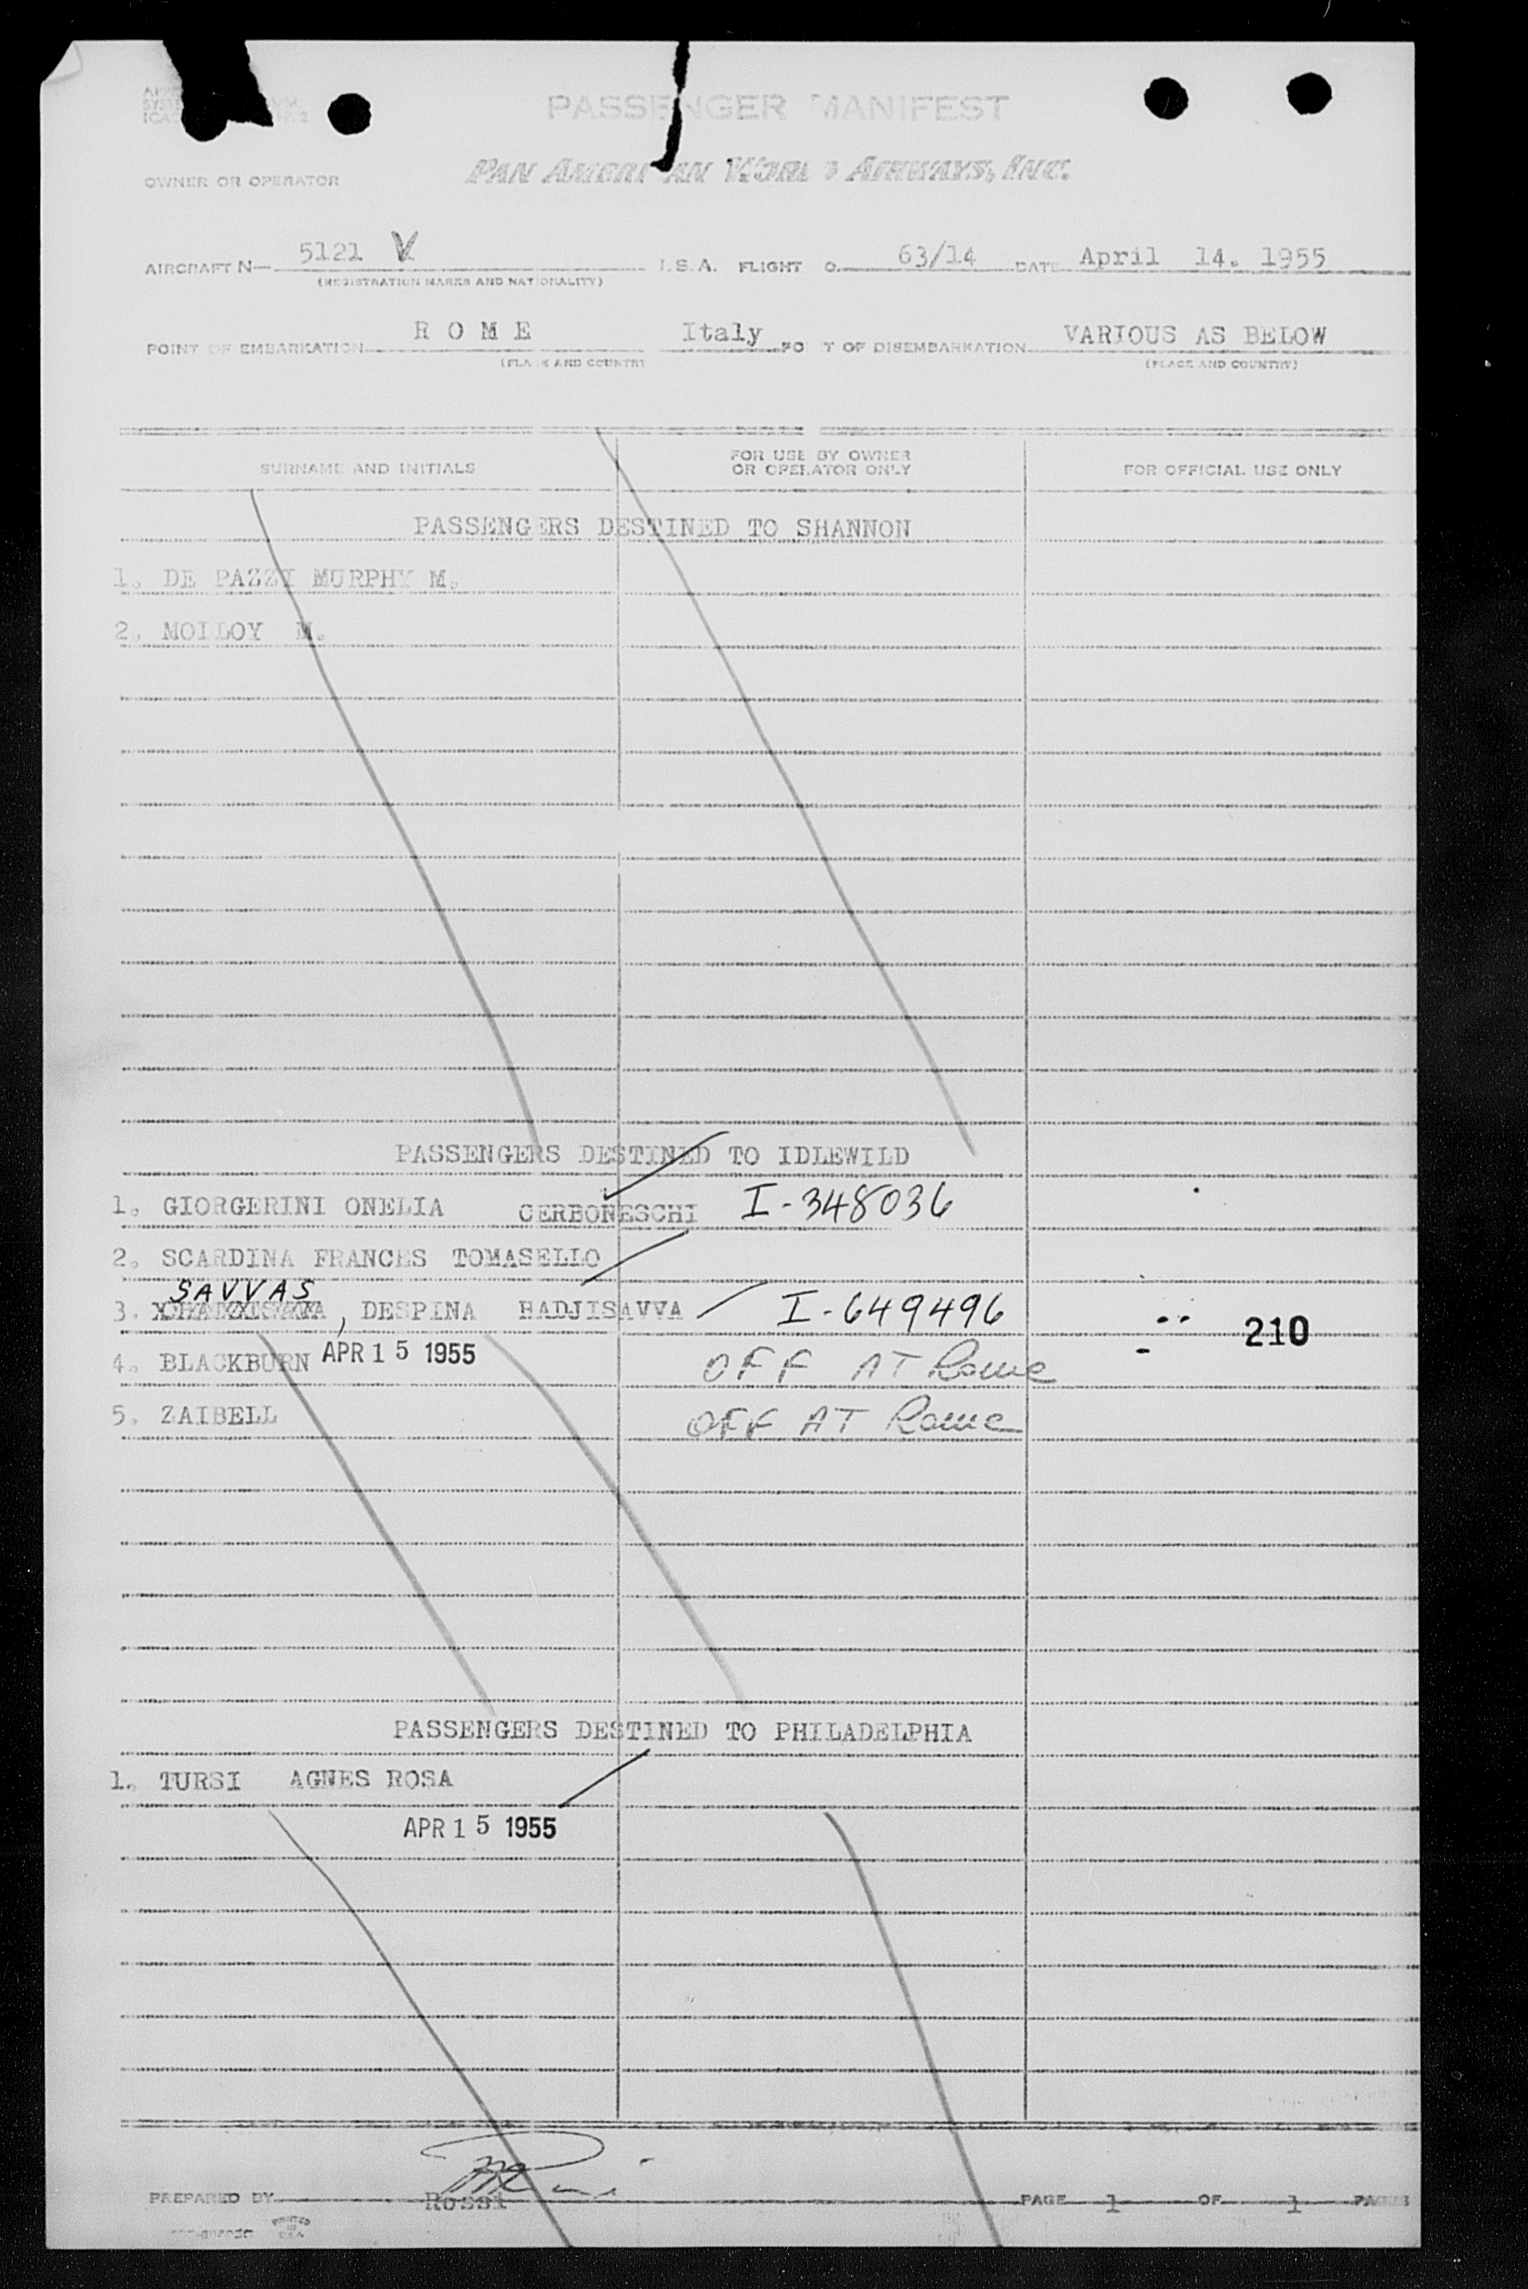 PASSENGER MANIFEST
OWNER OR OPERATOR PAN AMERICAN WORLD AIRWAYS, INC.
AIRCRAFT N— 5121 V U.S.A. FLIGHT O. 63/14 DATE April 14. 1955
(REGISTRATION MARKS AND NATIONALITY)
POINT OF EMBARKATION ROME Italy PO T OF DISEMBARKATION VARIOUS AS BELOW
(PLACE AND COUNTRY (PLACE AND COUNTRY)
SURNAME AND INITIALS FOR USE BY OWNER OR OPERATOR ONLY FOR OFFICIAL USE ONLY
PASSENGERS DESTINED TO SHANNON
1. DE PAZZI MURPHY M.
2. MOLLOY M.
PASSENGERS DESTINED TO IDLEWILD
1. GIORGERINI ONELIA CERBONESCHI I-348036
2. SCARDINA FRANCES TOMASELLO
SAVVAS
3. , DESPINA HADJISAVVA I-649496
210
4. BLACKBURN APR 15 1955 OFF AT Rome
5. ZAIBELL OFF AT Rome
PASSENGERS DESTINED TO PHILADELPHIA
1. TURSI AGNES ROSA
APR 15 1955
PREPARED BY Rossi PAGE 1 OF 1 PAGES
PRINTED IN U.S.A.